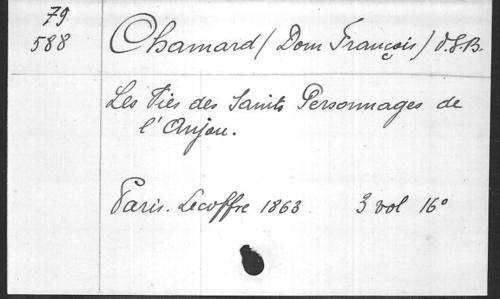 79
588
Chamard (Dom François) O.S.B.
Les Vies des Saints Personnages de
l'Anjou.
Paris. Lecoffre 1863 3 vol 16°